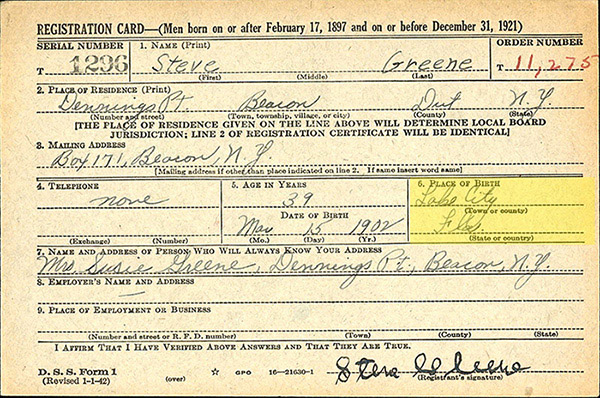 REGISTRATION CARD—(Men born on or after February 17, 1897 and on or before December 31, 1921)
SERIAL NUMBER 1. NAME (Print) ORDER NUMBER
T 1296 Steve Greene T 11,275
(First) (Middle) (Last)
2. PLACE OF RESIDENCE (Print)
Dennings Pt. Beacon Dut N.Y.
(Number and street) (Town, township, village, or city) (County) (State)
[THE PLACE OF RESIDENCE GIVEN ON THE LINE ABOVE WILL DETERMINE LOCAL BOARD
JURISDICTION; LINE 2 OF REGISTRATION CERTIFICATE WILL BE IDENTICAL]
3. MAILING ADDRESS
Box 171, Beacon, N.Y.
[Mailing address if other than place indicated on line 2. If same insert word same]
4. TELEPHONE 5. AGE IN YEARS 6. PLACE OF BIRTH
none 39 Lake City
DATE OF BIRTH (Town or county)
May 15 1902 Fla
(Exchange) (Number) (Mo.) (Day) (Yr.) (State or country)
7. NAME AND ADDRESS OF PERSON WHO WILL ALWAYS KNOW YOUR ADDRESS
Mrs. Susie Greene, Dennings Pt., Beacon, N.Y.
8. EMPLOYER'S NAME AND ADDRESS
—
9. PLACE OF EMPLOYMENT OR BUSINESS
(Number and street or R. F. D. number) (Town) (County) (State)
I AFFIRM THAT I HAVE VERIFIED ABOVE ANSWERS AND THAT THEY ARE TRUE.
D. S. S. Form 1
(Revised 1-1-42) (over) ☆ GPO 16—21630-1
(Registrant's signature)